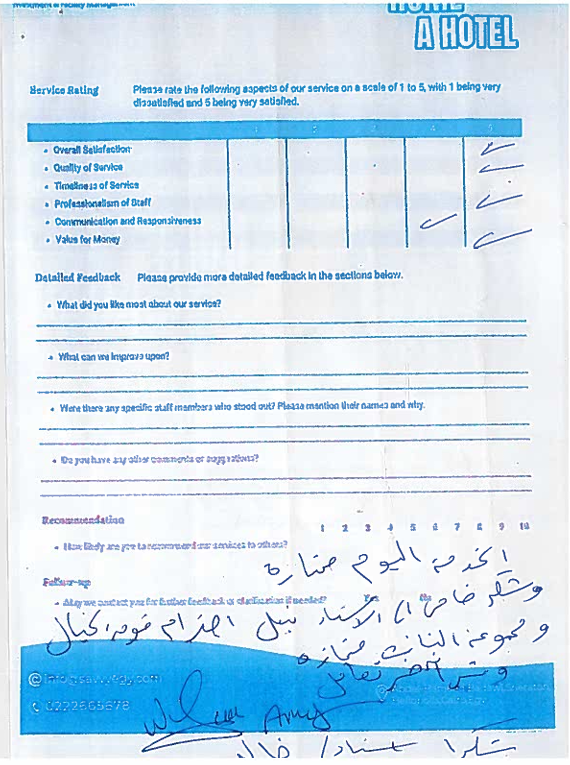 HOME
A HOTEL
Service Rating
Please rate the following aspects of our service on a scale of 1 to 5, with 1 being very
dissatisfied and 5 being very satisfied.
1 2 3 4 5
• Overall Satisfaction
• Quality of Service
• Timeliness of Service
• Professionalism of Staff
• Communication and Responsiveness
• Value for Money
Detailed Feedback Please provide more detailed feedback in the sections below.
• What did you like most about our service?
• What can we improve upon?
• Were there any specific staff members who stood out? Please mention their names and why.
• Do you have any other comments or suggestions?
Recommendation
1 2 3 4 5 6 7 8 9 10
• How likely are you to recommend our services to others?
الخدمه اليوم ممتازه
Follow-up
• May we contact you for further feedback or clarification if needed? Yes No
وشكر خاص الى الاستاذ نبيل احترام فوق الخيال
و مجموعة البنات ممتازه
info@savvyegy.com
0222665678
شكرا استاذ/ خالد